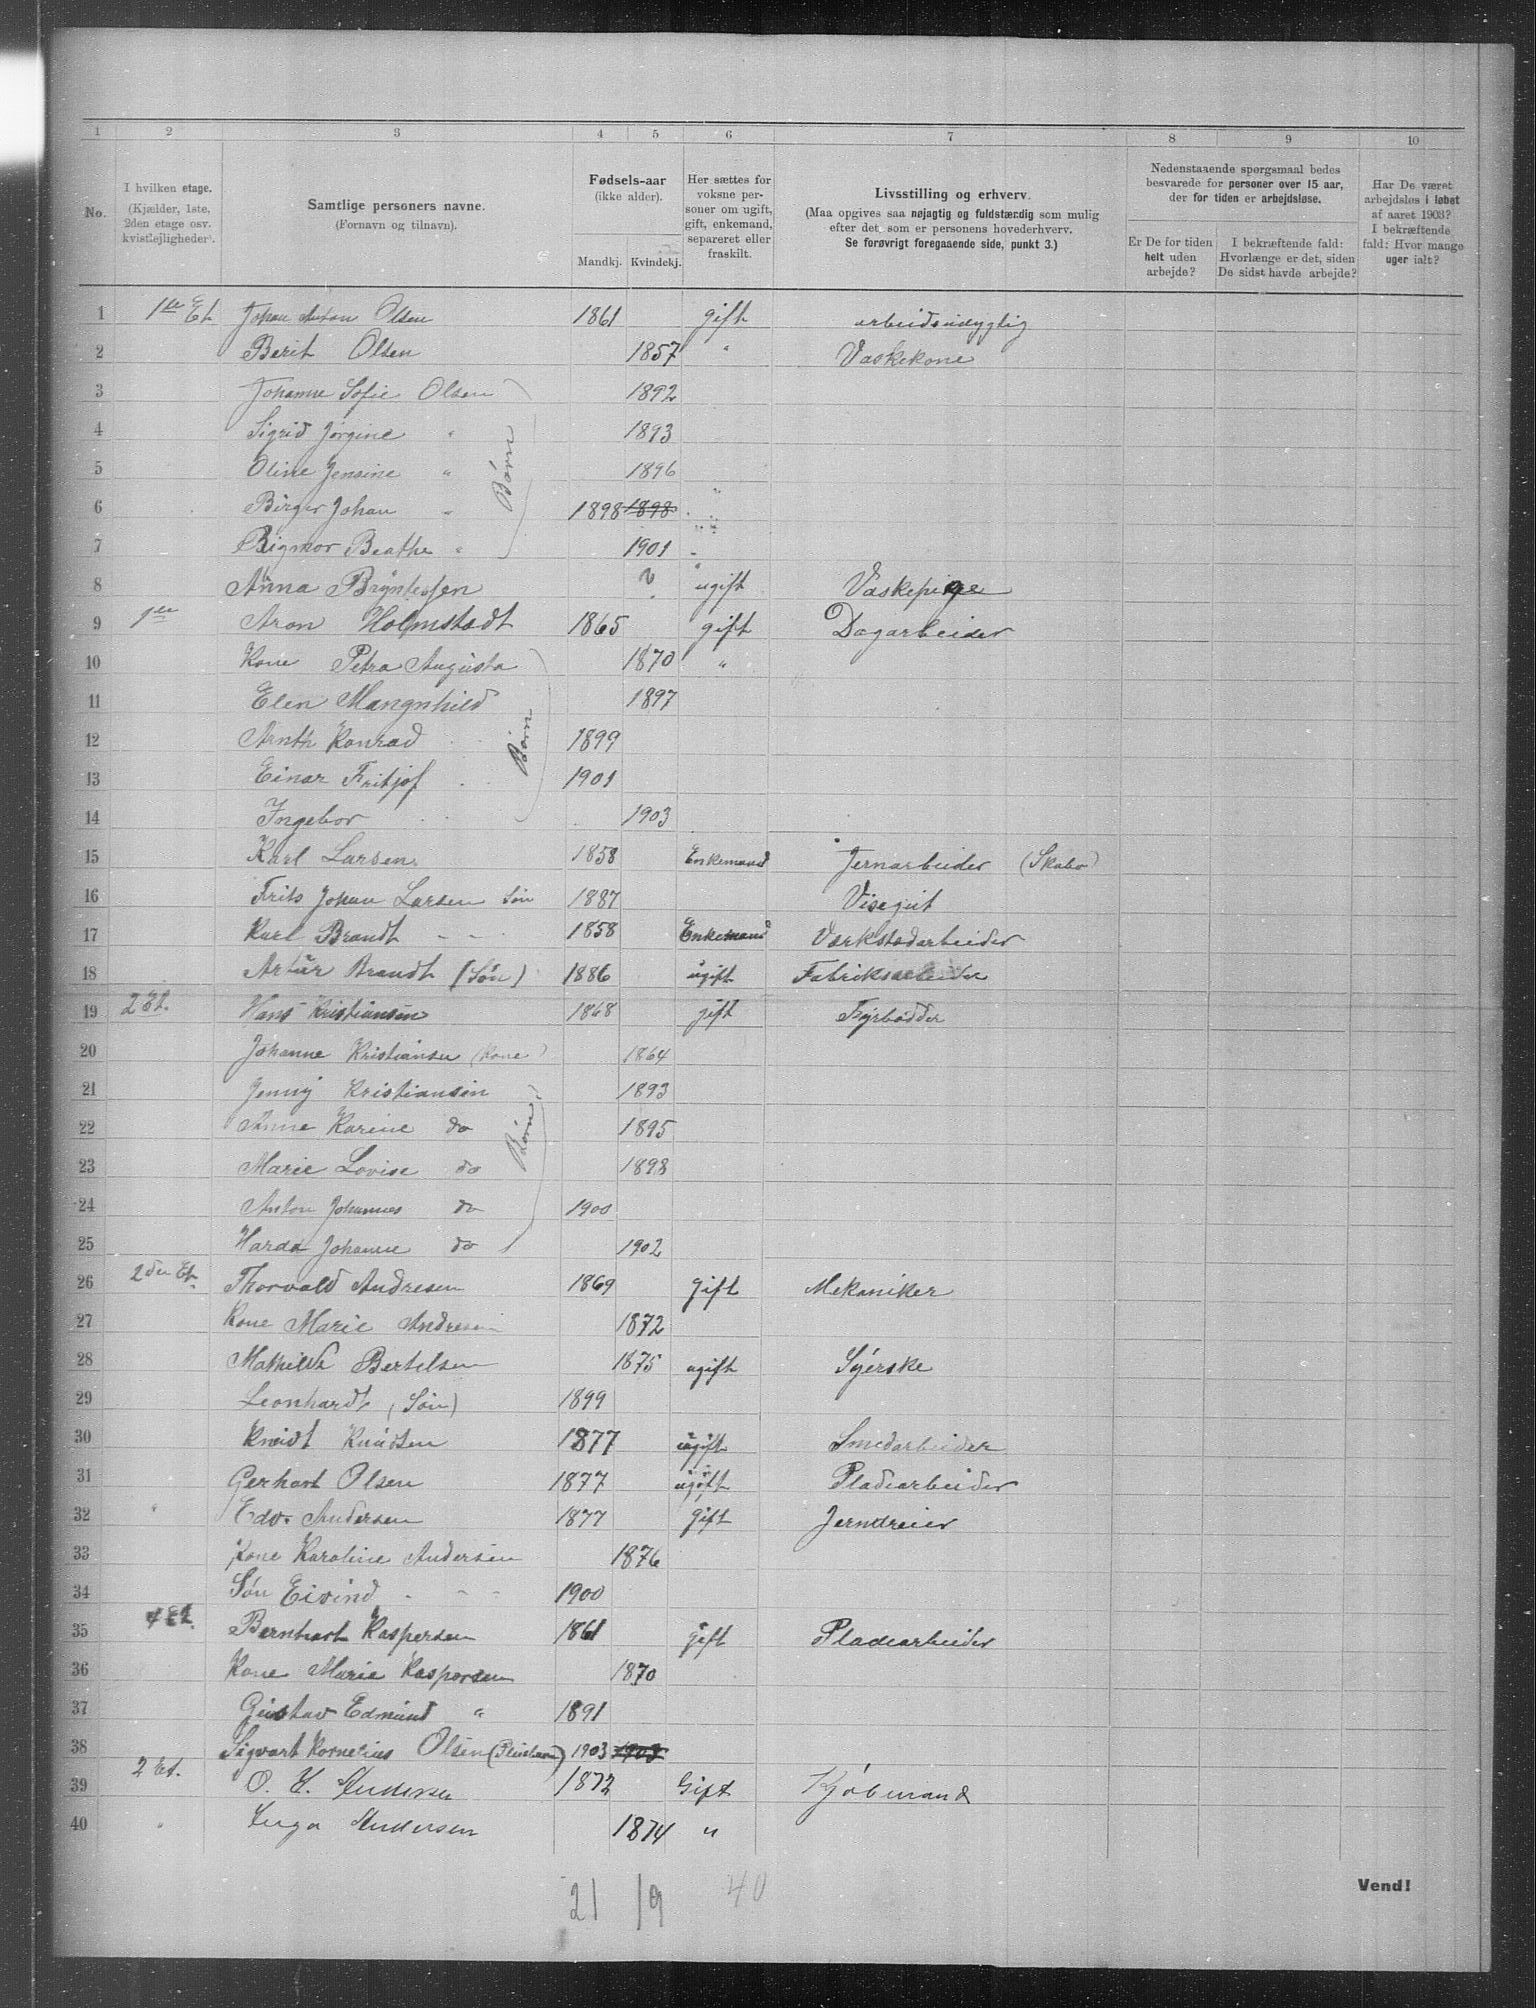 1 2 3 4 5 6 7 8 9 10
No.
I hvilken etage. (Kjælder, 1ste, 2den etage osv. kvistlejligheder).
Samtlige personers navne. (Fornavn og tilnavn).
Fødsels-aar (ikke alder). Mandkj. Kvindekj.
Her sættes for voksne personer om ugift, gift, enkemand, separeret eller fraskilt.
Livsstilling og erhverv. (Maa opgives saa nøjagtig og fuldstærdig som mulig efter det, som er personens hovederhverv. Se forøvrigt foregaaende side, punkt 3.)
Nedenstaaende spørgsmaal bedes besvarede for personer over 15 aar, der for tiden er arbejdsløse.
Er De for tiden helt uden arbejde?
I bekræftende fald: Hvorlænge er det, siden De sidst havde arbejde?
Har De været arbejdsløs i løbet af aaret 1903? I bekræftende fald: Hvor mange uger ialt?
1 1ste Et. Johan Anton Olsen 1861 gift arbeidsudygtig
2 Berit Olsen 1857 " Vaskekone
3 Johanne Sofie Olsen 1892
4 Sigrid Jørgine " 1893
5 Oline Jensine " 1896
Børn
6 Birger Johan " 1898 1898
7 Rigmor Beathe " 1901
8 Anna Bryntessen ? ugift Vaskepige
9 1ste Aron Holmstadt 1865 gift Dagarbeider
10 Kone Petra Augusta 1870 "
11 Elen Mangnhild 1897
12 Arnth Konrad 1899
Børn
13 Einar Fritjof 1901
14 Ingebor 1903
15 Karl Larsen 1858 Enkemand Jernarbeider (Skabo)
16 Frits Johan Larsen Søn 1887 Visegut
17 Karl Brandt 1858 Enkemand Værkstadarbeider
18 Artur Brandt (Søn) 1886 ugift Fabriksarbeider
19 2 Et. Hans Kristiansen 1868 gift Fyrbødder
20 Johanne Kristiansen (Kone) 1864
21 Jenny Kristiansen 1893
22 Anne Karine do 1895
Børn
23 Marie Lovise do 1898
24 Anton Johannes do 1900
25 Harda Johanne do 1902
26 2den Et. Thorvald Andresen 1869 gift Mekaniker
27 Kone Marie Andresen 1872
28 Mathilde Bertelsen 1875 ugift Syerske
29 Leonhardt (Søn) 1899
30 Knudt Knudsen 1877 ugift Smedarbeider
31 Gerhart Olsen 1877 ugift Pladearbeider
32 " Edv. Andersen 1877 gift Jerndreier
33 Kone Karoline Andersen 1876
34 Søn Eivind 1900
35 4 Et. Bernhart Kaspersen 1861 gift Pladearbeider
36 Kone Marie Kaspersen 1870
37 Gustav Edmund " 1891
38 Sigvart Kornelius Olsen (Pleiebarn) 1903 1903
39 2 Et. O. H. Andersen 1872 Gift Kjøbmand
40 " Inga Andersen 1874 "
Vend!
21 19 40